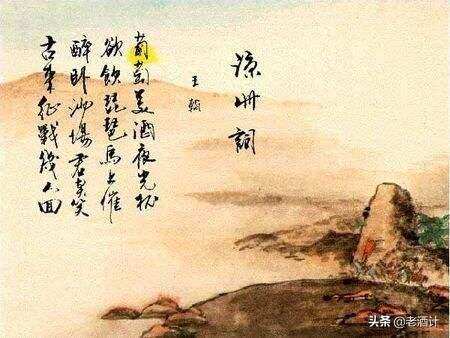 涼州詞
王翰
葡萄美酒夜光杯
欲飲琵琶馬上催
醉卧沙場君莫笑
古來征戰幾人回
头条 @老酒计